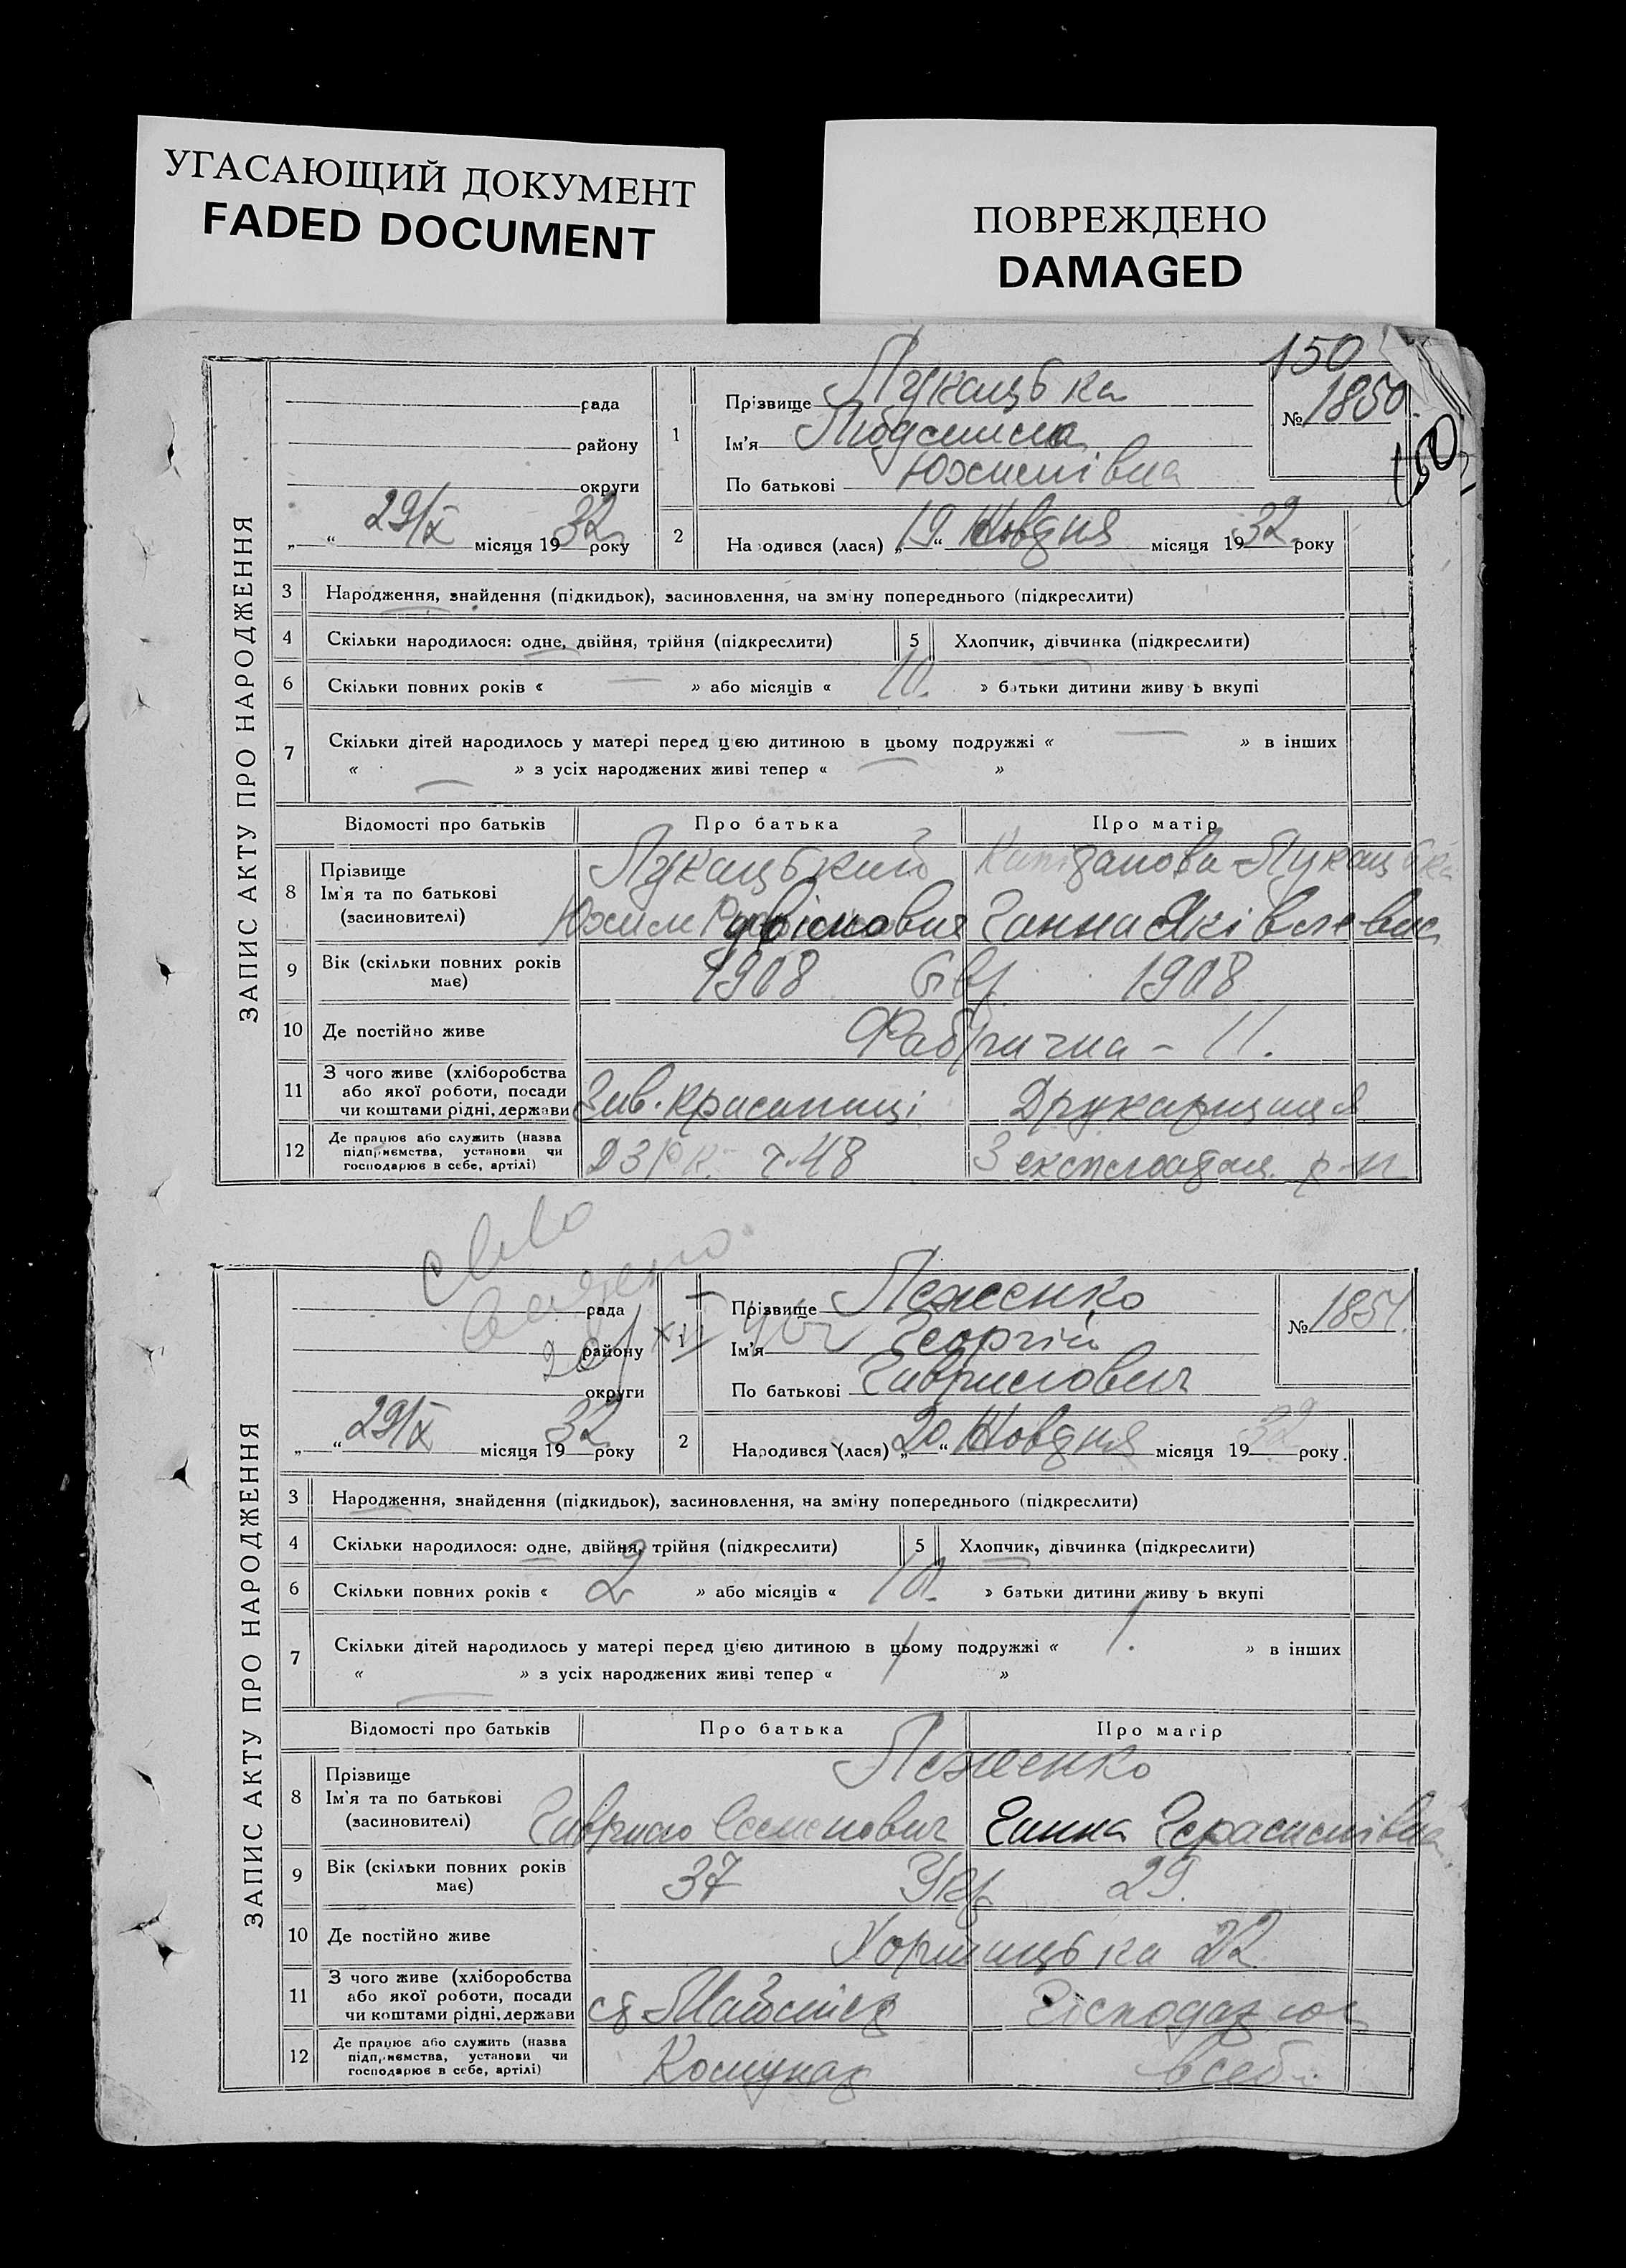 УГАСАЮЩИЙ ДОКУМЕНТ
FADED DOCUMENT
ПОВРЕЖДЕНО
DAMAGED
150
150
ЗАПИС АКТУ ПРО НАРОДЖЕННЯ
рада
району
округи
„ “ 29/X місяця 1932 року
1 Прізвище Лукацька
Ім'я Людмила
По батькові Юхимівна
№ 1850.
2 Народився (лася) „19“ Жовтня місяця 1932 року
3 Народження, знайдення (підкидьок), засиновлення, на зміну попереднього (підкреслити)
4 Скільки народилося: одне, двійня, трійня (підкреслити) 5 Хлопчик, дівчинка (підкреслити)
6 Скільки повних років « — » або місяців « 10. » батьки дитини живуть вкупі
7 Скільки дітей народилось у матері перед цією дитиною в цьому подружжі « — » в інших
« — » з усіх народжених живі тепер « — »
Відомості про батьків Про батька Про матір
8 Прізвище
Ім'я та по батькові
(засиновителі)
Лукацький Лукацька
Юхим Ганна Яківлевна
9 Вік (скільки повних років має) 1908 Євр. 1908
10 Де постійно живе Фабрична - 11.
11 З чого живе (хліборобства
або якої роботи, посади
чи коштами рідні, держави
Зав. крамниці Друкарщиця
12 Де працює або служить (назва
підприємства, установи чи
господарює в себе, артілі)
ч. 48 3 експлоатац. р-н
ЗАПИС АКТУ ПРО НАРОДЖЕННЯ
рада
району
округи
„ “ 29/X місяця 1932 року
1 Прізвище Леженко
Ім'я Георгій
По батькові Гаврилович
№ 1851.
2 Народився (лася) „20“ Жовтня місяця 1932 року.
3 Народження, знайдення (підкидьок), засиновлення, на зміну попереднього (підкреслити)
4 Скільки народилося: одне, двійня, трійня (підкреслити) 5 Хлопчик, дівчинка (підкреслити)
6 Скільки повних років « 2 » або місяців « 10. » батьки дитини живуть вкупі
7 Скільки дітей народилось у матері перед цією дитиною в цьому подружжі « 1. » в інших
« — » з усіх народжених живі тепер « 1 »
Відомості про батьків Про батька Про матір
8 Прізвище
Ім'я та по батькові
(засиновителі)
Леженко
Гаврило Семенович Ганна Герасимівна
9 Вік (скільки повних років має) 37 Укр. 29.
10 Де постійно живе Хортицька 22
11 З чого живе (хліборобства
або якої роботи, посади
чи коштами рідні, держави
ст. Майстер Господарює
12 Де працює або служить (назва
підприємства, установи чи
господарює в себе, артілі)
Комунар в себе